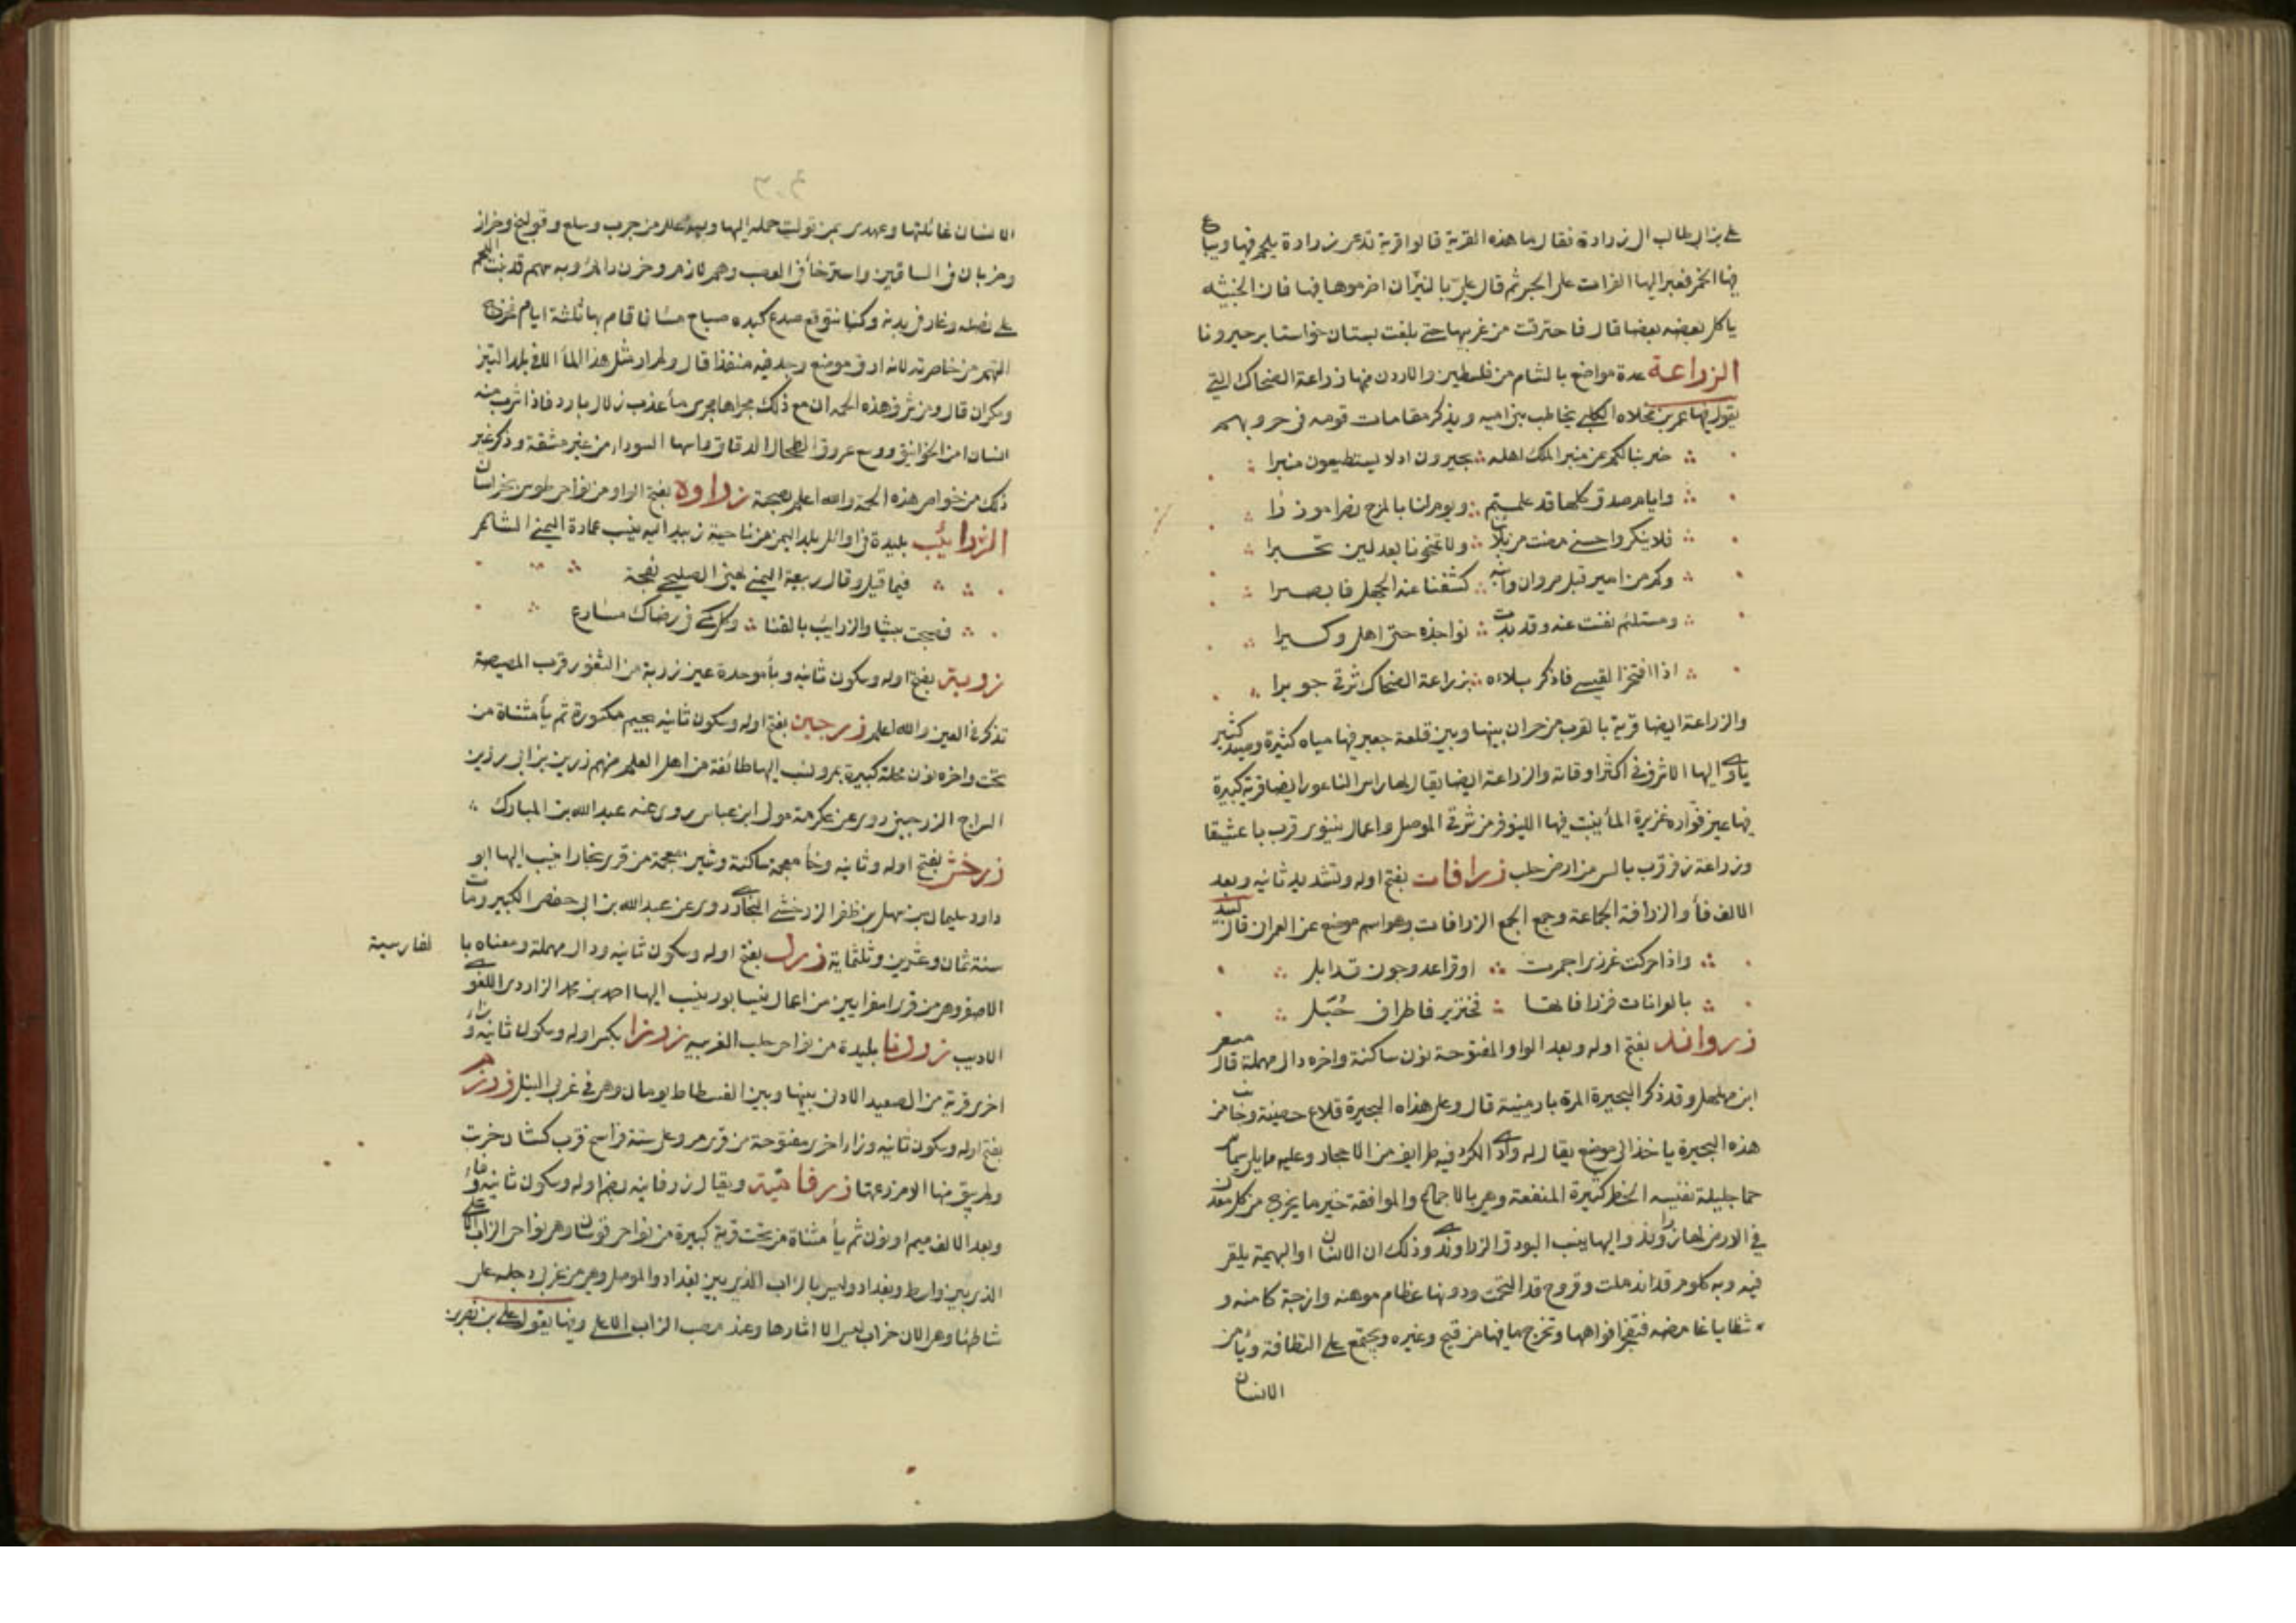 على بن ابى طالب الى زرارة فقال ما هذه القرية قالوا قرية تدعى زرارة يلحم فيها ويباع
فيها الخمر فعبر اليها الفرات على الجسر ثم قال على بالنيران اضرموها فيها فان الخبيثه
ياكل بعضه بعضا قال فاحترقت من غربيها حتى بلغت بستان خواستا بر جيرونا
الزراعة عدة مواضع بالشام من فلسطين والاردن منها زراعة الضحاك التى
يقول فيها عمر بن مخلاه الكلبى يخاطب بنى اميه ويذكر مقامات قومه فى حروبهم
ضربنا لكم عن منبر الملك اهله بجيرون اذ لا يستطيعون منبرا
وايام صدق كلها قد علمتم ويوم لنا بالمرج نصرا موزرا
فلا ينكروا حسنى مضت من بلائنا ولا تمنحونا بعد لين تجبرا
وكم من امير قبل مروان وابنه كشفنا عنه الجهل فابصرا
ومستلئم نفست عنه وقد بدت نواجذه حتى اهل وكبرا
اذا افتخر القيسى فاذكر بلاءه بزراعة الضحاك شرقى جوبرا
والزراعة ايضا قرية بالقرب من حران بينها وبين قلعة جعبر فيها مياه كثيرة وصيد كثير
ياوى اليها الاشرف فى اكثر اوقاته والزراعة ايضا يقال لها راس الناعور ايضا قرية كبيرة
فيها عين فواره غزيرة الماء ينبت فيها اللينوفر من شرقى الموصل واعمال نينوى قرب باعشيقا
وزراعة زفر قرب بالس من ارض حلب زرافات بفتح اوله وتشديد ثانيه وبعد
الالف فأ والزرافة الجماعة وجمع الجمع الزرافات وهو اسم موضع عن العمرانى قال لبيد
واذا حركت غرزى اجمرت او قرا عدو جون قد ابل
بالغرابات فزرافاتها فبخنزير فاطراف حبل
زراوند بفتح اوله وبعد الواو المفتوحة نون ساكنة واخره دال مهملة قال مسعر
ابن مهلهل وقد ذكر البحيرة المرة بارمينية قال وعلى هذه البحيرة قلاع حصينة وجانب من
هذه البحيرة ياخذ الى موضع يقال له وادى الكرد فيه طرايف من الاحجار وعليه مما يلى سلماس
حما جليلة نفيسه الخطر كثيرة المنفعة وهى بالاجماع والموافقة خير ما يخرج من كل معدن
فى الارض لها زراوند واليها ينسب البورق الزراوندى وذلك ان الانسان او البهيمة يلقى
فيه وبه كلوم قد اندملت وقروح قد التحمت ودونها عظام موهنه وازجة كامنه و
شظايا غامضه فتنفجر افواهها وتخرج ما فيها من قيح وغيره ويجتمع على النظافة ويأمن
الانسان
الانسان غائلتها وعهدى بمن توليت حمله اليها وبه علل من جرب وسلع وقولنج وحزاز
وضربان فى الساقين واسترخأ فى العصب وهم لازم وحزن دائم وبه سهم قد نبت اللحم
على نصله وغار فى بدنه وكنا نتوقع صدع كبده صباح مساء فاقام بها ثلثة ايام فخرج
السهم من خاصرته لانه ارق موضع وجد فيه منفذا قال ولم ار مثل هذا الماأ الا فى بلد التيز
ومكران قال ومن شرف هذه الحمه ان مع ذلك مجراها مجرى مأ عذب زلال بارد فاذا شرب منه
انسان امن الخوانيق ووسع عروق الطحال الدقاق واسهل السودا من غير مشقة وذكر غير
ذلك من خواص هذه الحمة والله اعلم بصحة زراوه بفتح الواو من نواحى طوس بخراسان
الزرايب بليدة فى اوائل بلد اليمن من ناحية زبيد اليه ينسب عمارة اليمنى الشاعر
فيما قيل وقال ربيعة اليمنى يعنى الصليحى بفجة
فصبحت بيشا والزرايب بالقنا وكل كمى فى رضاك مسارع
زربتر بفتح اوله وسكون ثانيه وبأ موحدة عين زربة من الثغور قرب المصيصة
تذكر فى العين والله اعلم زرجين بفتح اوله وسكون ثانيه بجيم مكسورة ثم يأ مثناة من
تحت واخره نون محلة كبيرة بمرو ينسب اليها طائفة من اهل العلم منهم زرين بن ابى رزين
السراج الزرجينى روى عن عكرمة مولى ابن عباس روى عنه عبد الله بن المبارك
زرخش بفتح اوله وثانيه وخأ معجمة ساكنة وشين معجمة من قرى بخارا ينسب اليها ابو
داود سليمان بن سهل بن ظفر الزرخشى البخارى روى عن عبد الله بن ابى حفص الكبير ومات
سنة ثمان وعشرين وثلثماية زرد بفتح اوله وسكون ثانيه ودال مهملة ومعناه با
لفارسية
الاصفر وهى من قرى اسفرايين من اعمال نيسابور ينسب اليها احمد بن محمد الزاردى اللغوى
الاديب زردنا بليدة من نواحى حلب الغربيه زرنزا بكسر اوله وسكون ثانيه وزاء
اخرى قرية من الصعيد الادنى بينها وبين الفسطاط يومان وهى فى غربى النيل زرزم
بفتح اوله وسكون ثانيه وزاء اخرى مفتوحة من قرى مرو على ستة فراسخ قرب كمسان خربت
وطريق منها الا مزرعتها زرفامية ويقال زرفانيه بضم اوله وسكون ثانيه وفاء
وبعد الالف ميم او نون ثم يأ مثناة من تحت قرية كبيرة من نواحى قوسان وهى نواحى الزاب الاعلى
الذى بين واسط وبغداد وليس بالزاب الذى بين بغداد والموصل وهى من غربى دجله على
شاطئها وهى الان خراب ليس الا اثارها وعند مصب الزاب الاعلى وفيها يقول على بن نصر بن